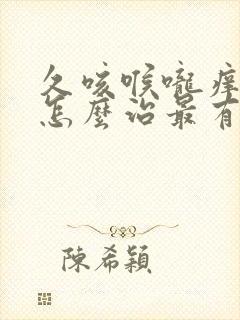 久咳喉嚨痒
怎麼治最有
陳希穎